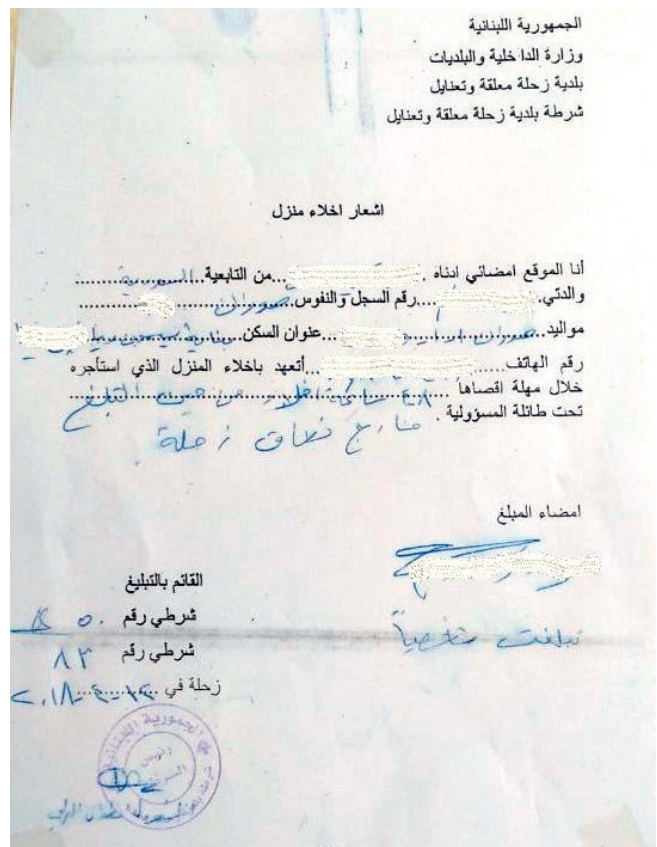 الجمهورية اللبنانية
وزارة الداخلية والبلديات
بلدية زحلة معلقة وتعنايل
شرطة بلدية زحلة معلقة وتعنايل
اشعار اخلاء منزل
أنا الموقع امضائي ادناه ....من التابعية....السورية....
والدتي.......رقم السجل والنفوس....صوران....
مواليد....صوران....عنوان السكن....
رقم الهاتف........أتعهد باخلاء المنزل الذي استأجره
خلال مهلة اقصاها ٤٨ ساعة من حين التبلغ
تحت طائلة المسؤولية . خارج نطاق زحلة
امضاء المبلغ
تبلغت شخصياً
القائم بالتبليغ
شرطي رقم ٥٠
شرطي رقم ٨٣
زحلة في ١٢-٤-٢٠١٨
الجمهورية اللبنانية